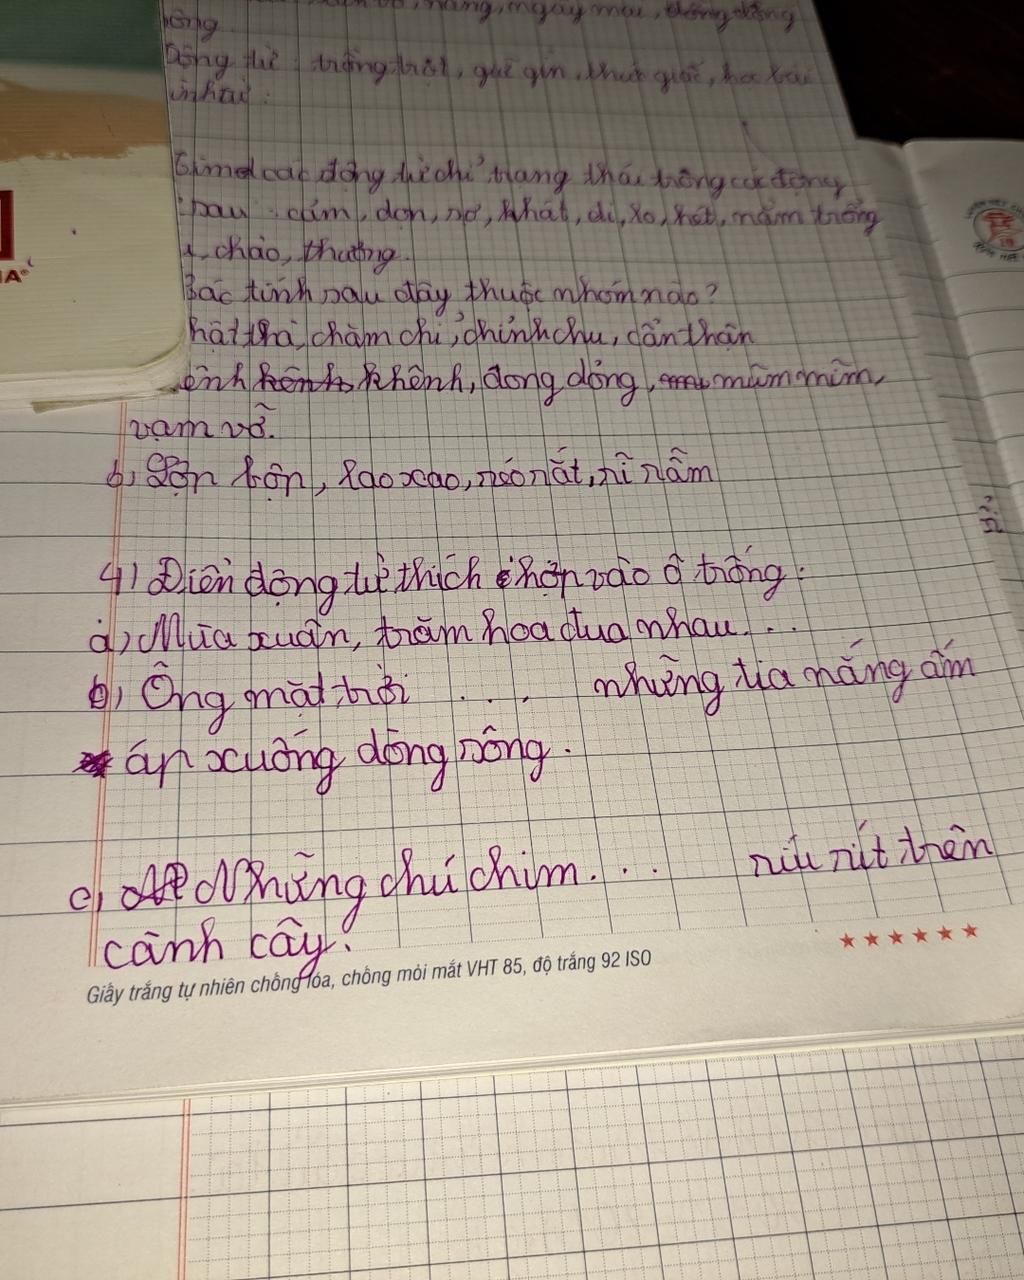 nắng, ngày mai,
Động từ : trồng trọt, giữ gìn, thức giấc, học bài
Gìmd các động từ chỉ trạng thái trong các động
sau : cấm, dọn, nợ, khát, đi, lo, hét, nằm trồng
chào, thưởng.
Các tính sau đây thuộc nhóm nào?
thật thà, chăm chỉ, chỉnh chu, cẩn thận
khênh, đong đỏng, mũm mĩm,
vạm vỡ.
b, Sộn bộn, lao xao, réo rắt, rì rầm
4) Điền động từ thích hợp vào ô trống :
a, Mùa xuân, trăm hoa đua nhau...
b, Ông mặt trời ... những tia nắng ấm
áp xuống dòng sông.
c, Những chú chim... ríu rít trên
cành cây.
Giấy trắng tự nhiên chống lóa, chống mỏi mắt VHT 85, độ trắng 92 ISO